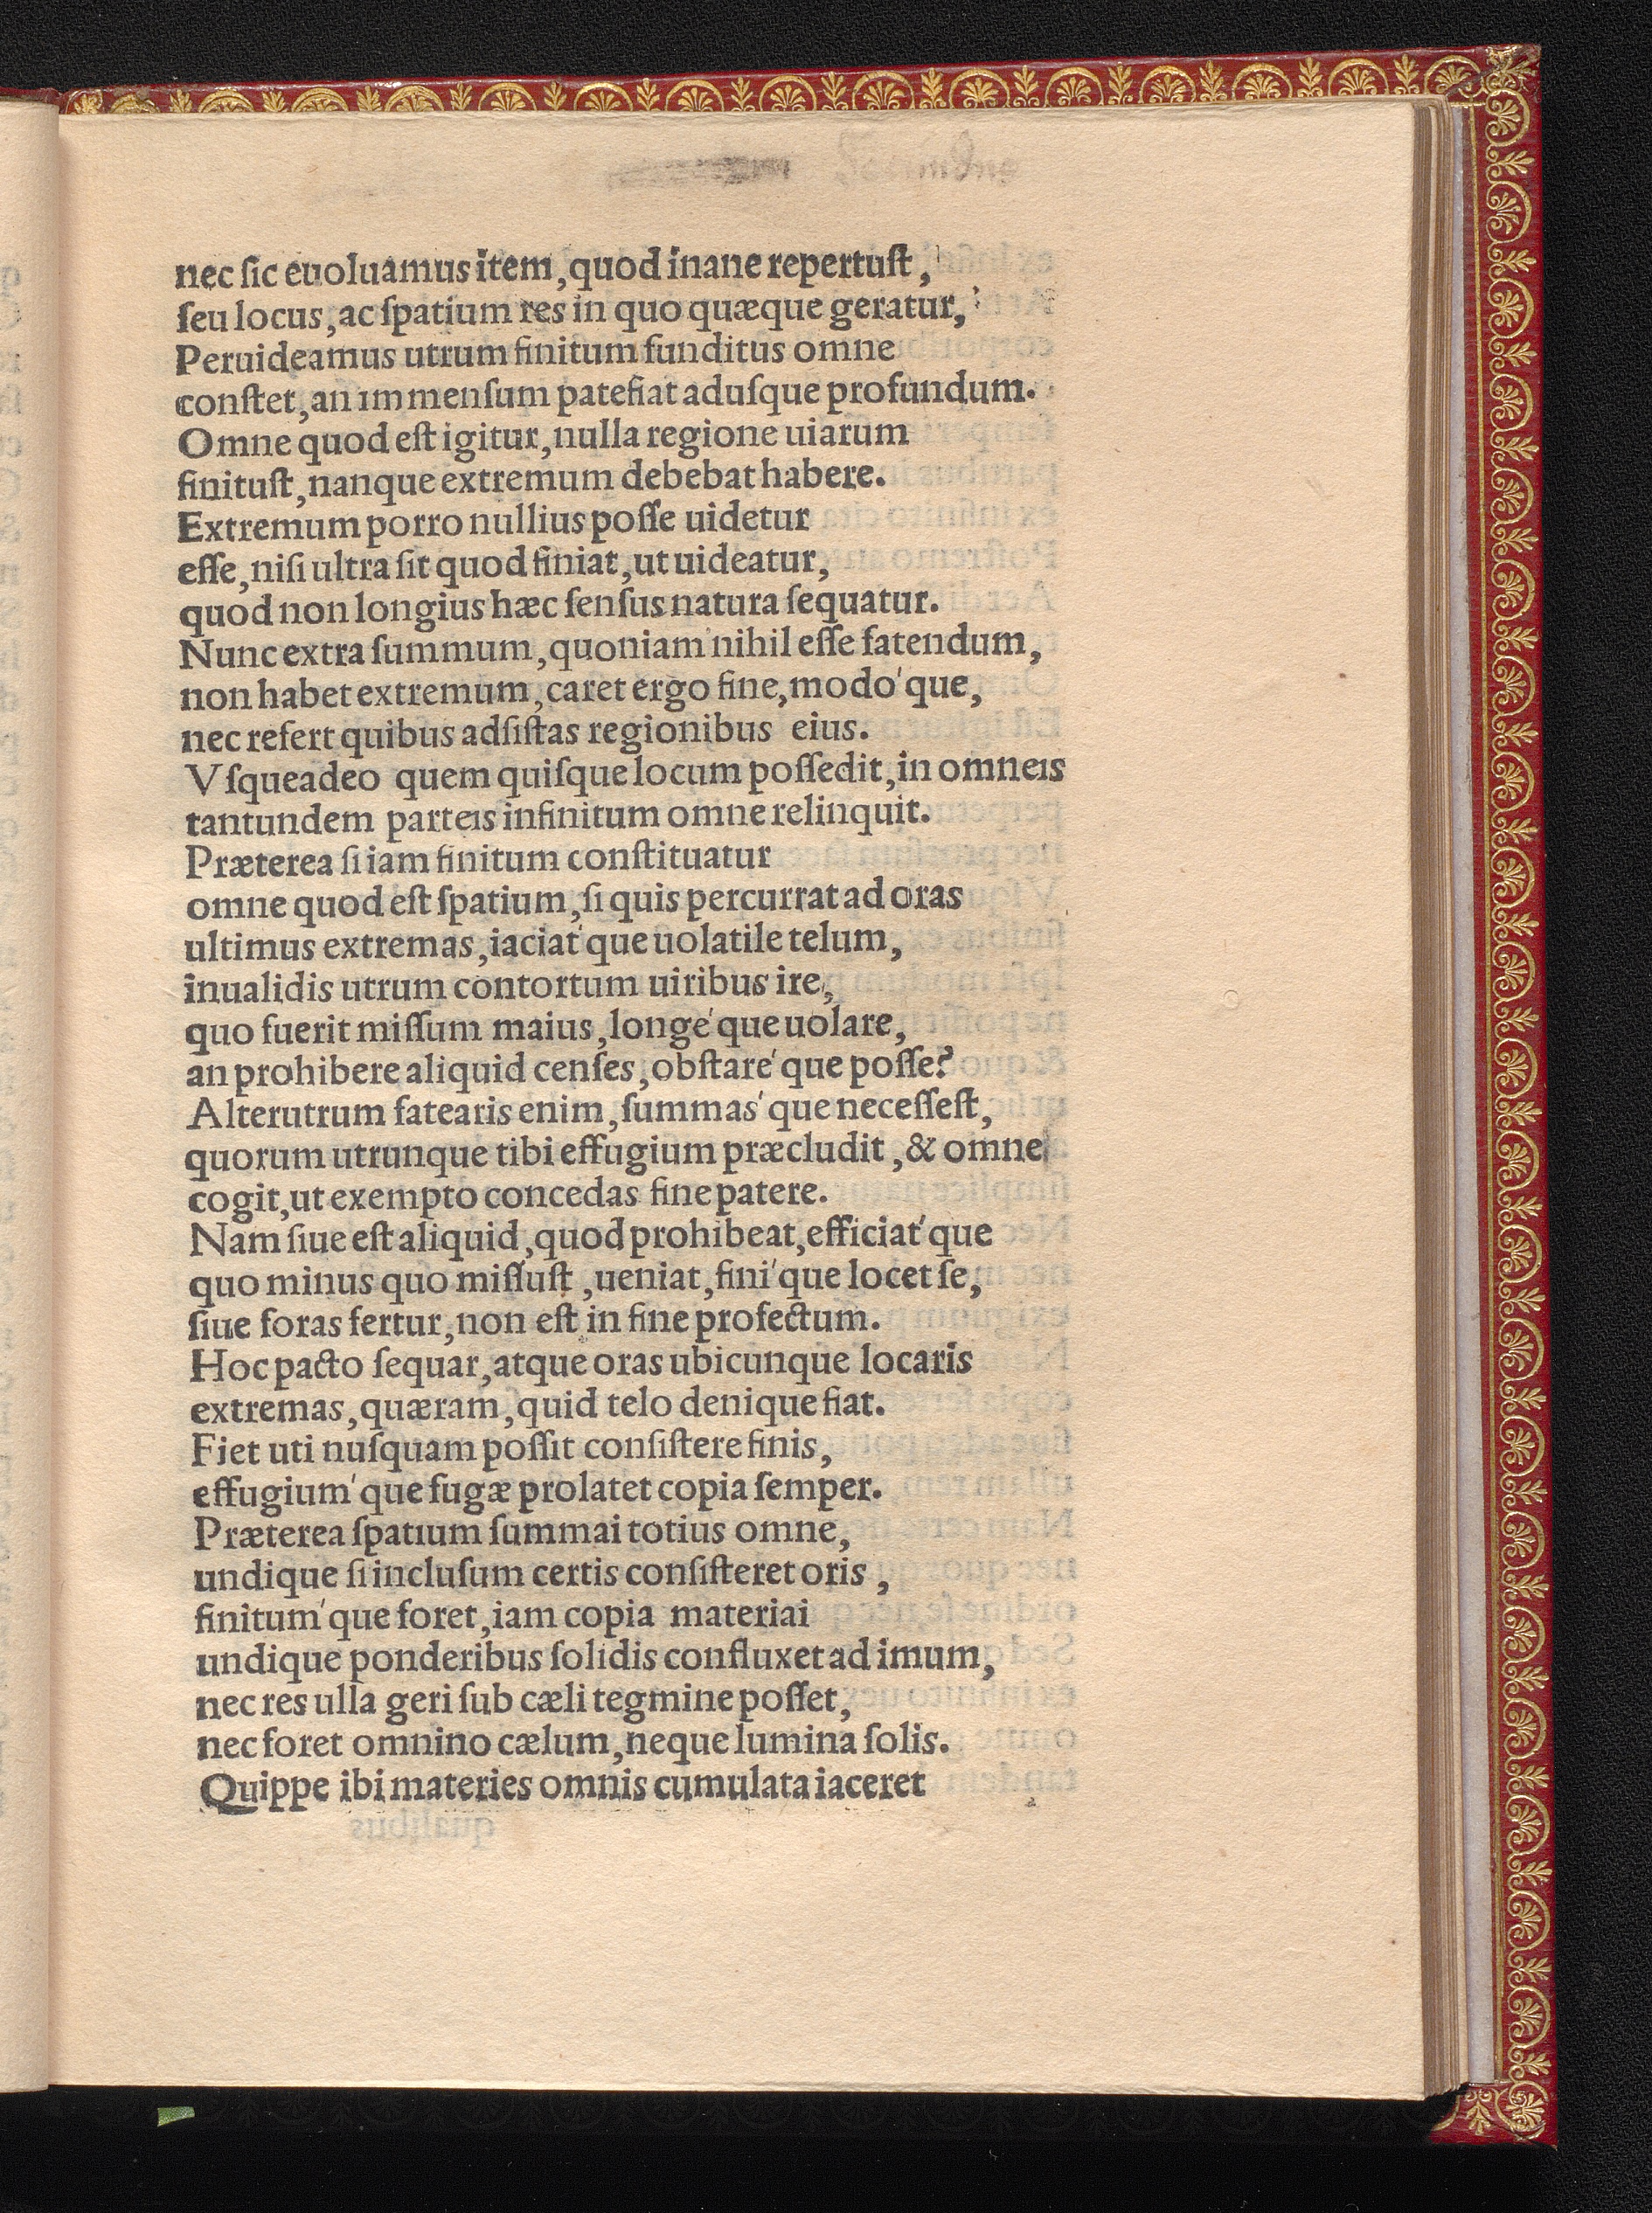 nec ſic euoluamus item, quod inane repertuſt,
ſeu locus, ac ſpatium res in quo quæque geratur,
Peruideamus utrum finitum funditus omne
conſtet, an immenſum patefiat aduſque profundum.
Omne quod eſt igitur, nulla regione uiarum
finituſt, nanque extremum debebat habere.
Extremum porro nullius poſſe uidetur
eſſe, niſi ultra ſit quod finiat, ut uideatur,
quod non longius hæc ſenſus natura ſequatur.
Nunc extra ſummum, quoniam nihil eſſe fatendum,
non habet extremum, caret ergo fine, modo'que,
nec refert quibus adſiſtas regionibus eius.
Vſqueadeo quem quiſque locum poſſedit, in omneis
tantundem parteis infinitum omne relinquit.
Præterea ſi iam finitum conſtituatur
omne quod eſt ſpatium, ſi quis percurrat ad oras
ultimus extremas, iaciat'que uolatile telum,
inualidis utrum contortum uiribus ire,
quo fuerit miſſum maius, longe'que uolare,
an prohibere aliquid cenſes, obſtare'que poſſe?
Alterutrum fatearis enim, ſummas'que neceſſeſt,
quorum utrunque tibi effugium præcludit, & omne
cogit, ut exempto concedas fine patere.
Nam ſiue eſt aliquid, quod prohibeat, efficiat'que
quo minus quo miſſuſt, ueniat, fini'que locet ſe,
ſiue foras fertur, non eſt in fine profectum.
Hoc pacto ſequar, atque oras ubicunque locaris
extremas, quæram, quid telo denique fiat.
Fiet uti nuſquam poſſit conſiſtere finis,
effugium'que fugæ prolatet copia ſemper.
Præterea ſpatium ſummai totius omne,
undique ſi incluſum certis conſiſteret oris,
finitum'que foret, iam copia materiai
undique ponderibus ſolidis confluxet ad imum,
nec res ulla geri ſub cæli tegmine poſſet,
nec foret omnino cælum, neque lumina ſolis.
Quippe ibi materies omnis cumulata iaceret